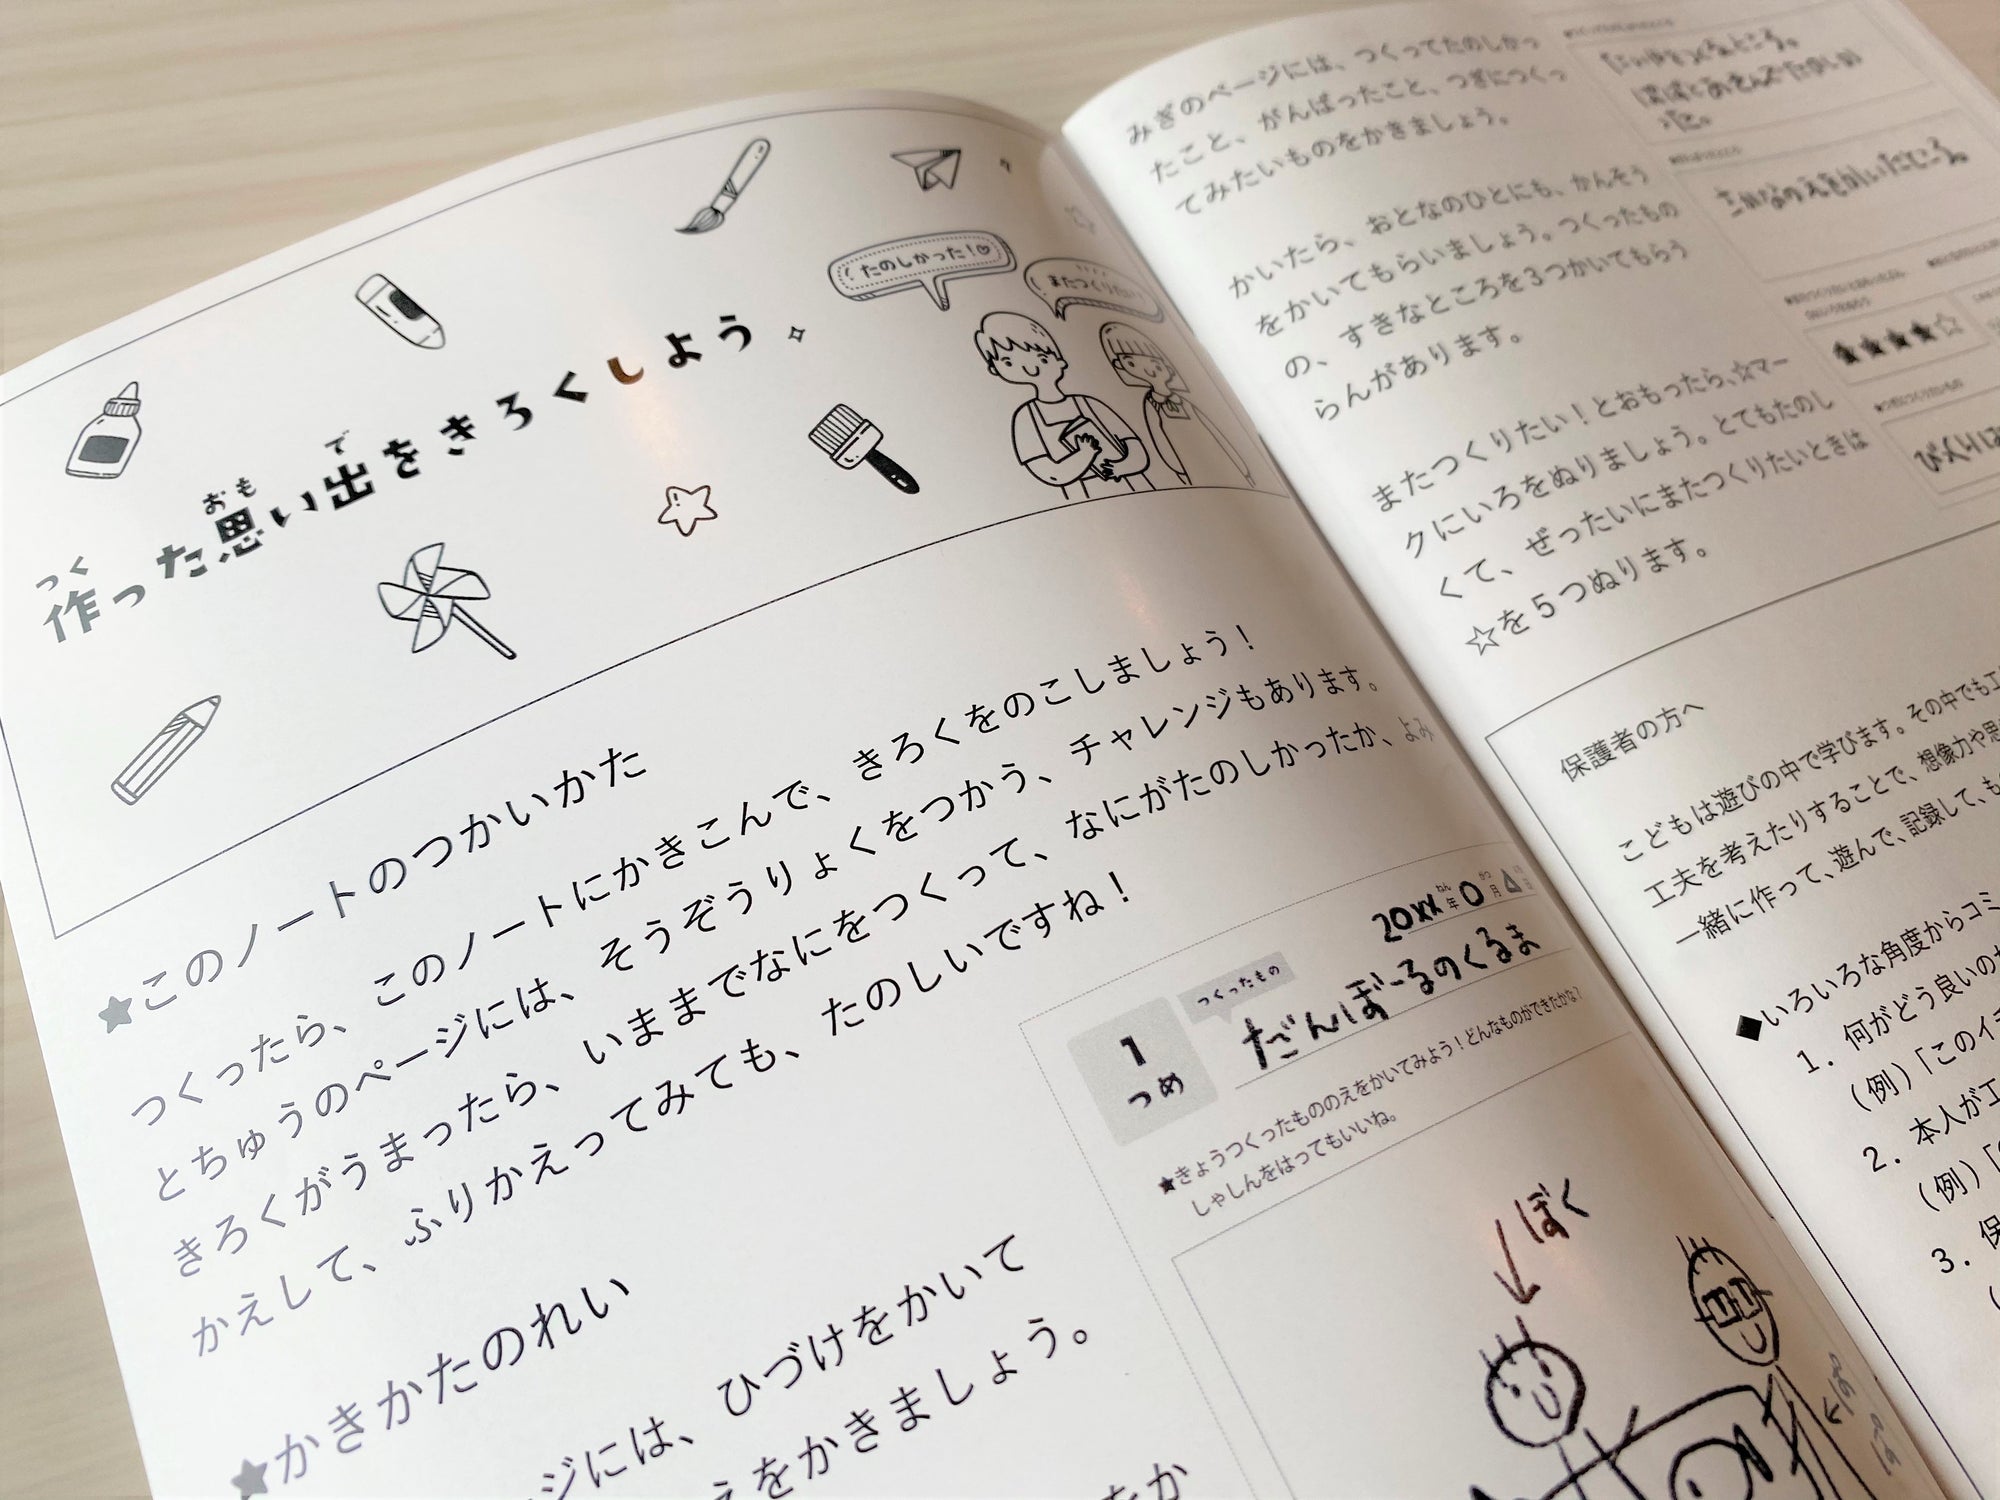 作った思い出をきろくしよう。
つく
おも
で
たのしかった！
またつくりたい
★このノートのつかいかた
つくったら、このノートにかきこんで、きろくをのこしましょう！
とちゅうのページには、そうぞうりょくをつかう、チャレンジもあります。
きろくがうまったら、いままでなにをつくって、なにがたのしかったか、よみ
かえして、ふりかえってみても、たのしいですね！
★かきかたのれい
ジには、ひづけをかいて
えをかきましょう。
をか
20XX年0月△
ねん
がつ
1
つめ
つくったもの
だんぼーるのくるま
★きょうつくったもののえをかいてみよう！どんなものができたかな？
しゃしんをはってもいいね。
ぼく
みぎのページには、つくってたのしかっ
たこと、がんばったこと、つぎにつくっ
てみたいものをかきましょう。
かいたら、おとなのひとにも、かんそう
をかいてもらいましょう。つくったもの
の、すきなところを3つかいてもらう
らんがあります。
またつくりたい！とおもったら、☆マー
クにいろをぬりましょう。とてもたのし
くて、ぜったいにまたつくりたいときは
☆を5つぬります。
さかなのえをかいたところ。
★★★★☆
保護者の方へ
こどもは遊びの中で学びます。その中でも工
工夫を考えたりすることで、想像力や思
一緒に作って、遊んで、記録して、も
◆いろいろな角度からコミ
1．何がどう良いのか
（例）「このイラ
2．本人が工
（例）「
3．保
（